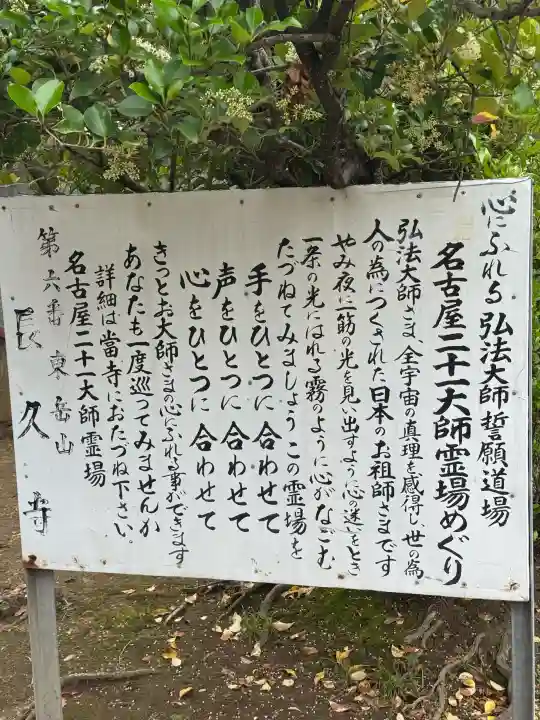 心にふれる弘法大師誓願道場
名古屋二十一大師霊場めぐり
弘法大師さま、全宇宙の真理を感得し、世の為
人の為につくされた日本のお祖師さまです
やみ夜に一筋の光を見い出すように心の迷いをとき
一条の光にはれる霧のように心がなごむ
たづねてみましょうこの霊場を
手をひとつに合わせて
声をひとつに合わせて
心をひとつに合わせて
きっとお大師さまの心にふれる事ができます
あなたも一度巡ってみませんか
詳細は當寺におたづね下さい。
名古屋二十一大師霊場
第六番東岳山
長久寺